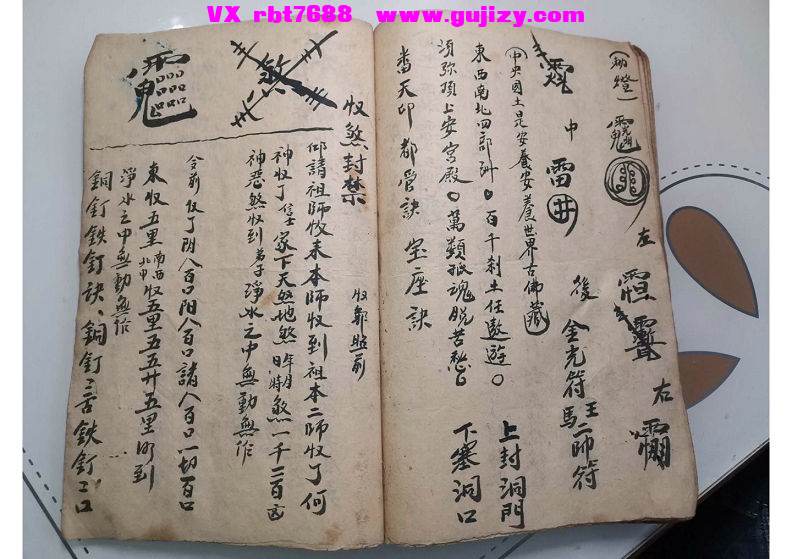 VX rbt7688 www.gujizy.com
左
右
中雷
後
金光符王
馬二帥符
中央國土是安養安養世界古佛藏
東西南北四部州百千刹土任遨遊
須弥頂上安宫殿萬類孤魂脱苦愁
上封洞門
下塞洞口
番天印都管訣宝座訣
收煞封禁
收邪照前
仰請祖師收來本師收到祖本二師收了何
神收了信士家下天煞地煞年月日時煞一千二百凶
神惡煞收到弟子淨水之中無動無作
令前收了陰人百口陽人百口諸人百口一切百口
東收五里南西北中收五里五五廿五里收到
淨水之中無動無作
銅釘鉄釘訣銅釘二舌鉄釘二口